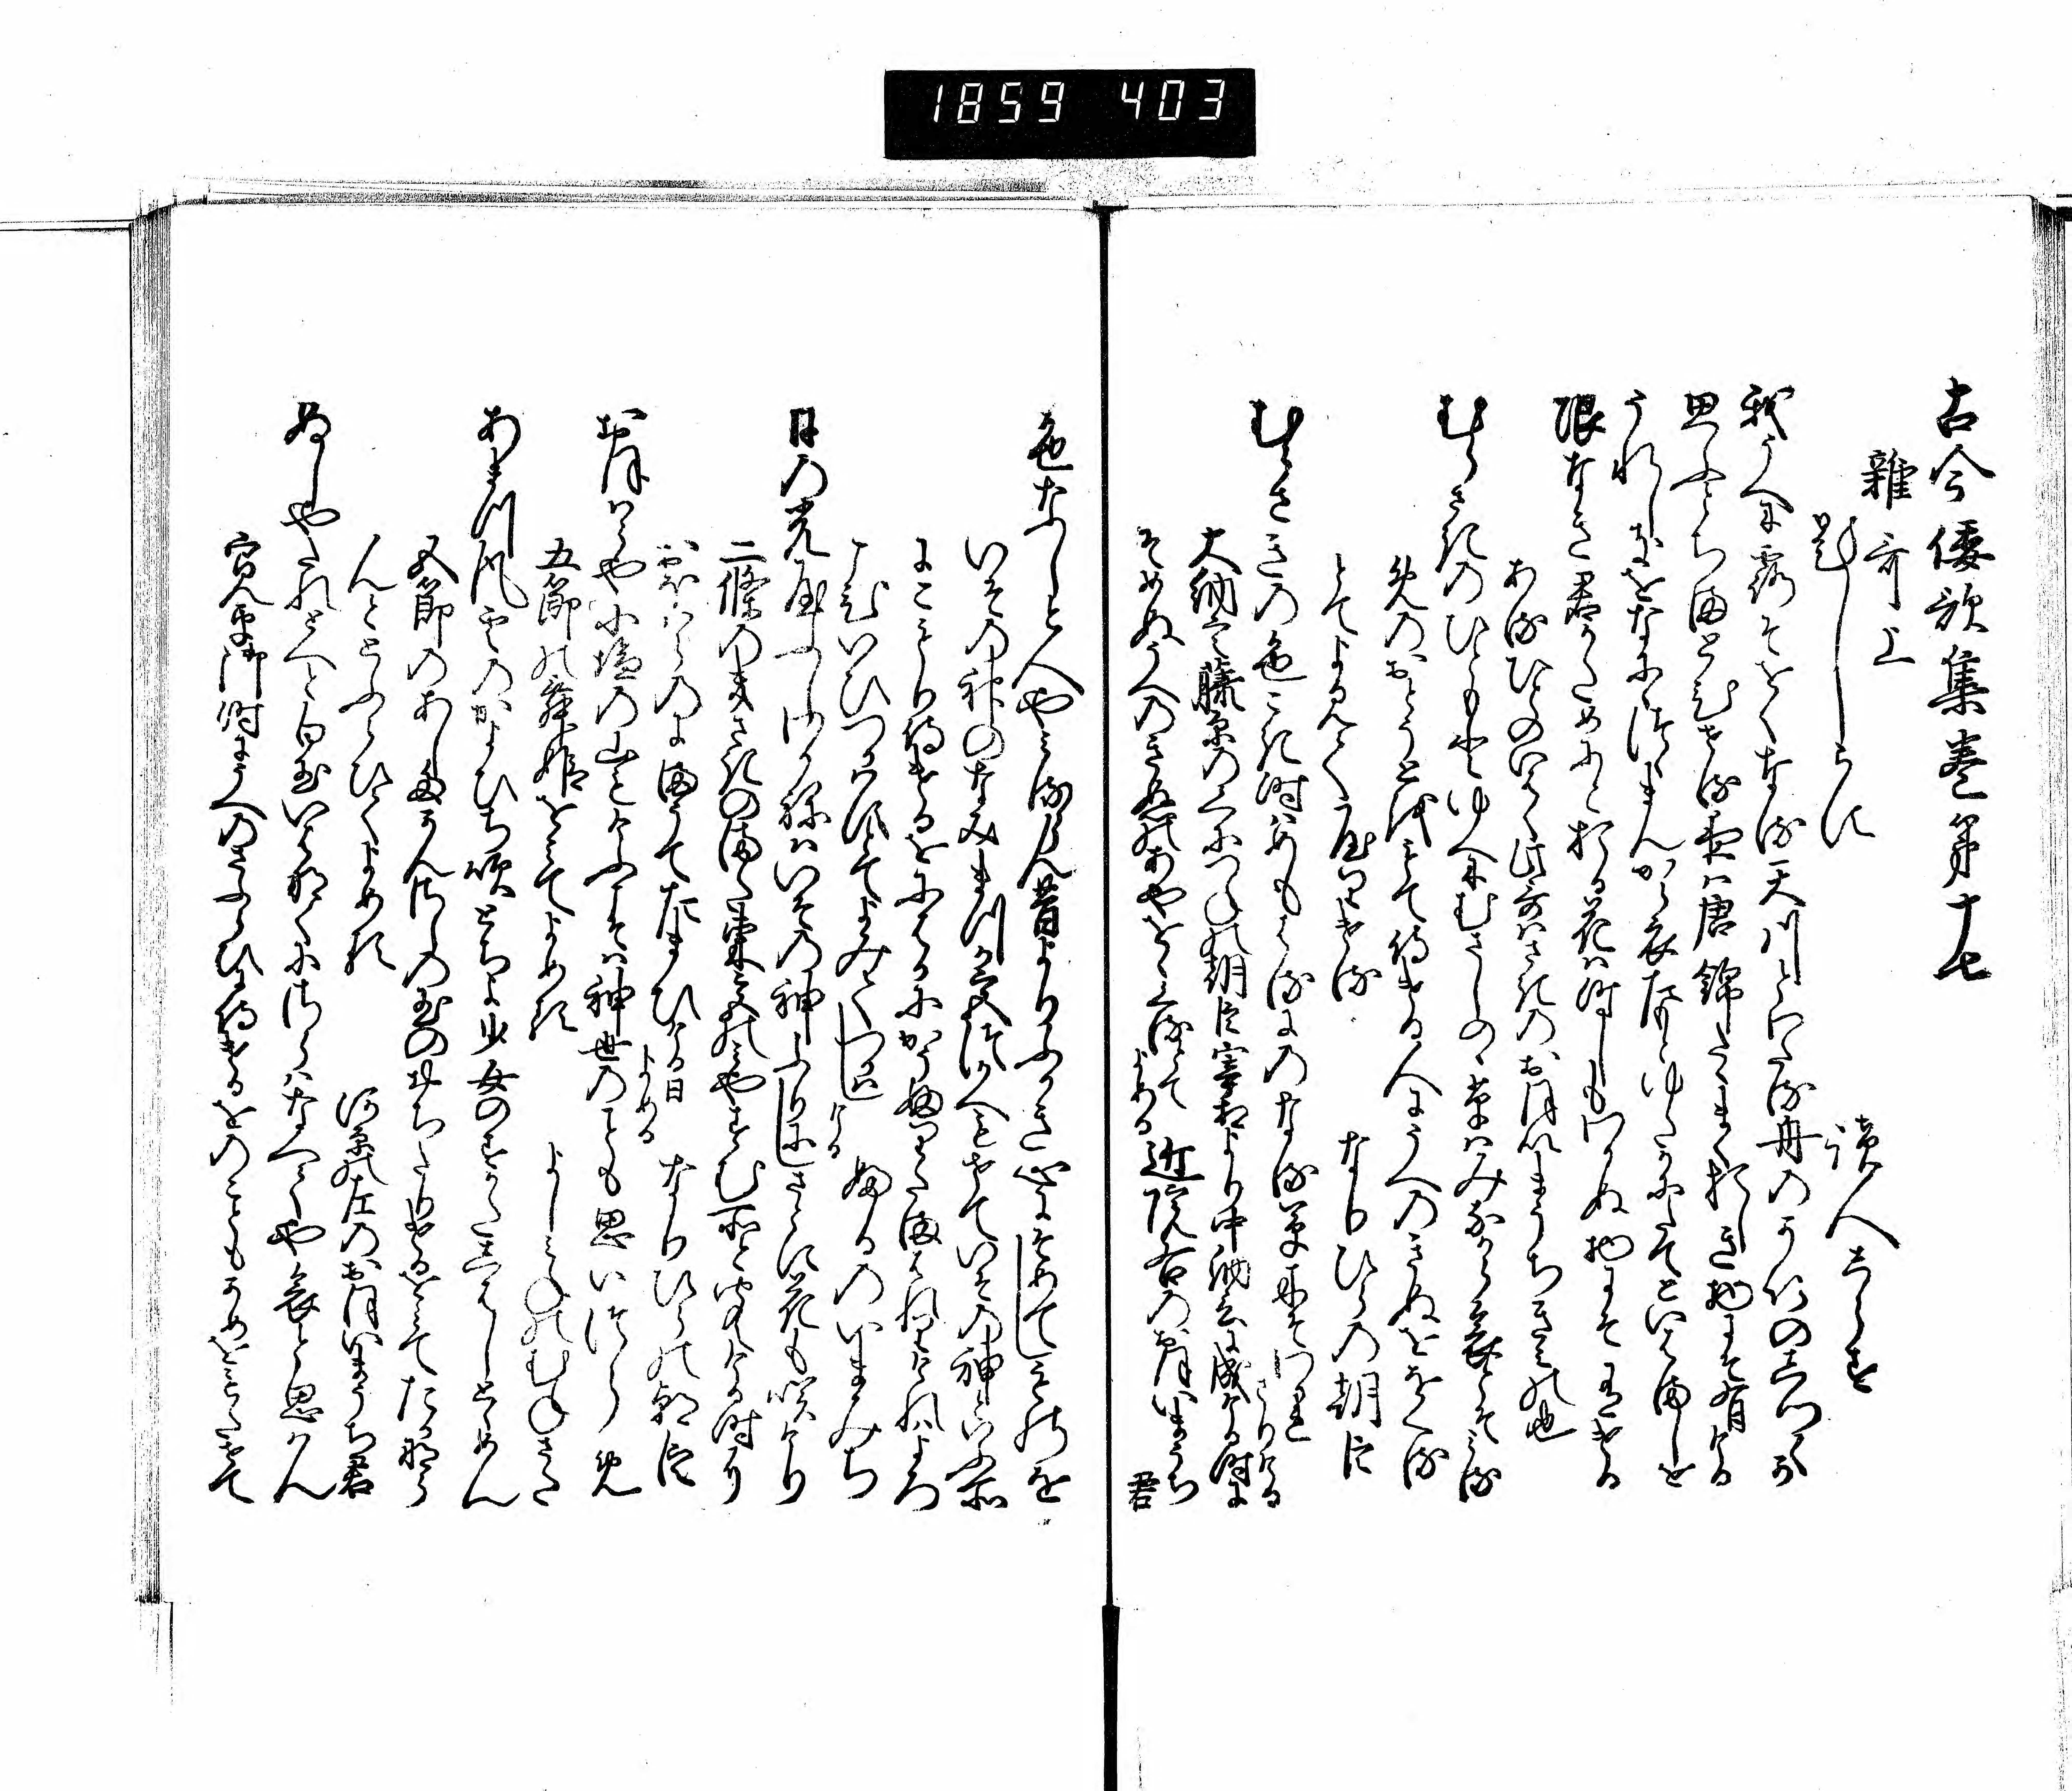 1859 403
古今倭歌集巻第十七
雑哥上
題しらす
読人しらす
我うへに露そをくなる天川とわたる舟のかいのしつくか
思ふとちまとゐせる夜は唐錦たたまくおしき物にそ有ける
うれしきをなにゝつゝまんから衣たもとゆたかにたてといはましを
限なき君かためにと折る花は時しもわかぬ物にそ有ける
ある人のいはく此哥はさきのおほいまうちきみの也
むらさきのひともとゆへにむさしのゝ草はみなからあはれとそみる
めのおとうとをもて侍ける人にうへのきぬををくる
とてよみてやりける
なりひらの朝臣
むらさきの色こき時はめもはるにのなる草木そわかれ
さりける
大納言藤原のくにつねの朝臣宰相より中納言に成ける時に
そめぬうへのきぬのあやををくるとて
よめる
近院右のおほいまうち
君
色なしと人やみるらん昔よりふかき心にそめてしものを
いその神のなみまつか宮つかへもせていその神といふ所
にこもり侍けるをにはかにかうふりたまはれりけれはよろ
こひいひつかはすとてよみてつかはし
ける
ふるのいまみち
日の光やふしわかねはいその神ふりにしさとに花も咲けり
二條のきさきのまた東宮のみやすむ所と申ける時に
おほはらのにまうてたまひける日
よめる
なりひらの朝臣
大原や小塩の山もけふこそは神世のことも思いつらめ
五節の舞姫をみてよめる
よしみねのむねさた
あまつ風雲のかよひち吹とちよ少女のすかたしはしとゝめん
五節のあしたにかんさしの玉のおちたりけるをみてたかなら
んととふらひてよめる
河原の左のおほいまうち君
ぬしやたれとへと白玉いはなくにさらはなへてや哀と思はん
寛平御時にうへのさふらひに侍けるをのこともかめをもたせて